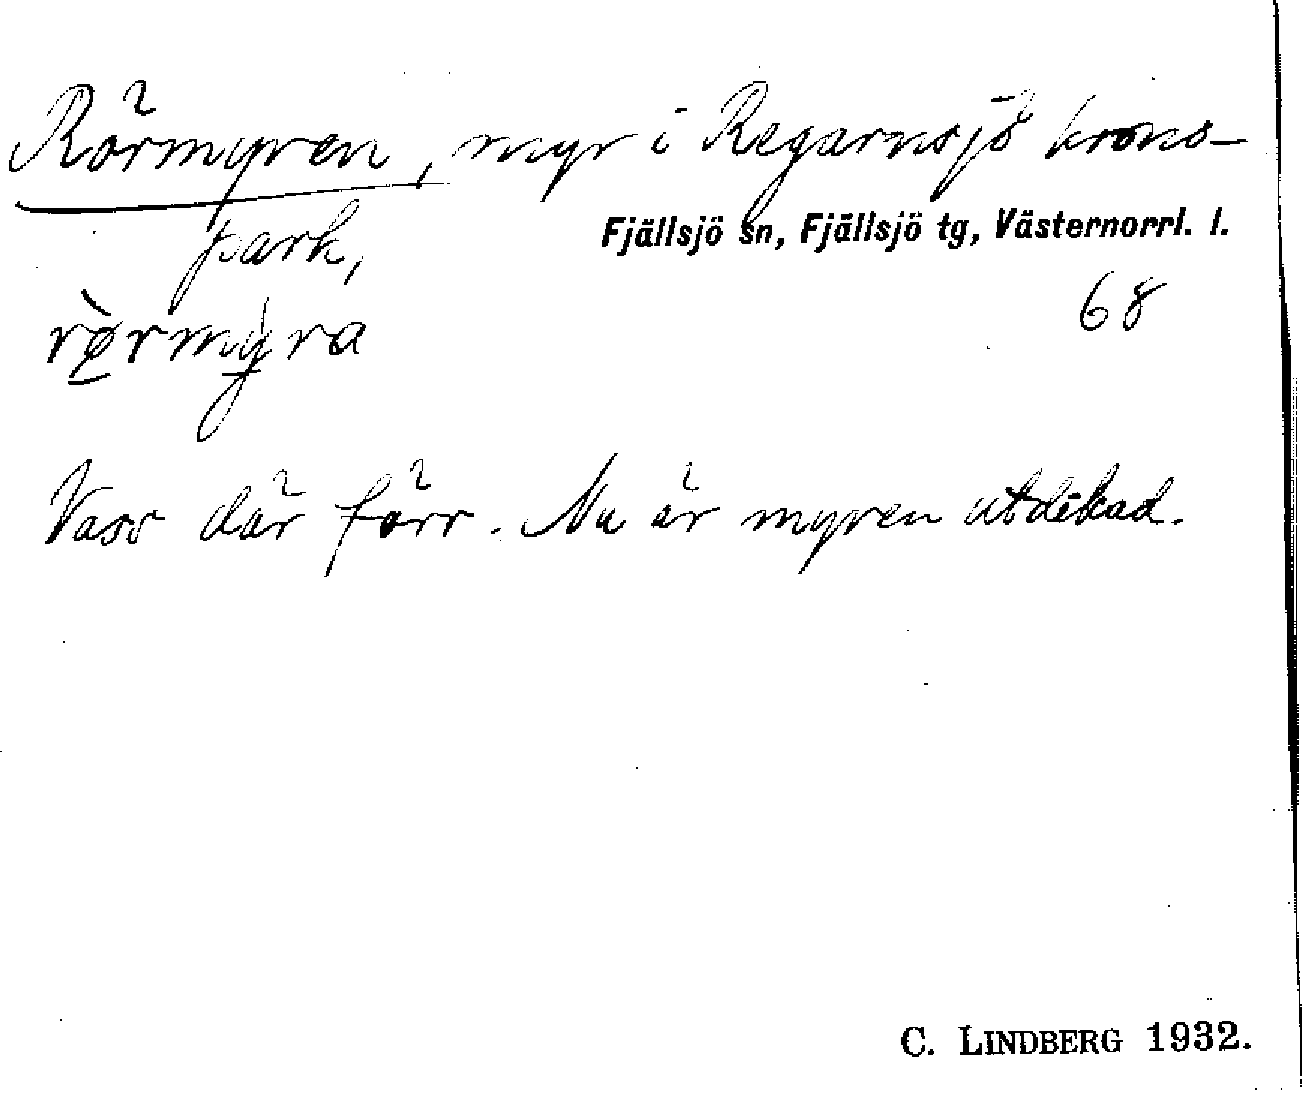 Rörmyren, myr i Regarnsjö krono-
park,
Fjällsjö sn, Fjällsjö tg, Västernorrl. l.
68
rø̀rmýra
Vass där förr. Nu är myren utdikad.
C. LINDBERG 1932.